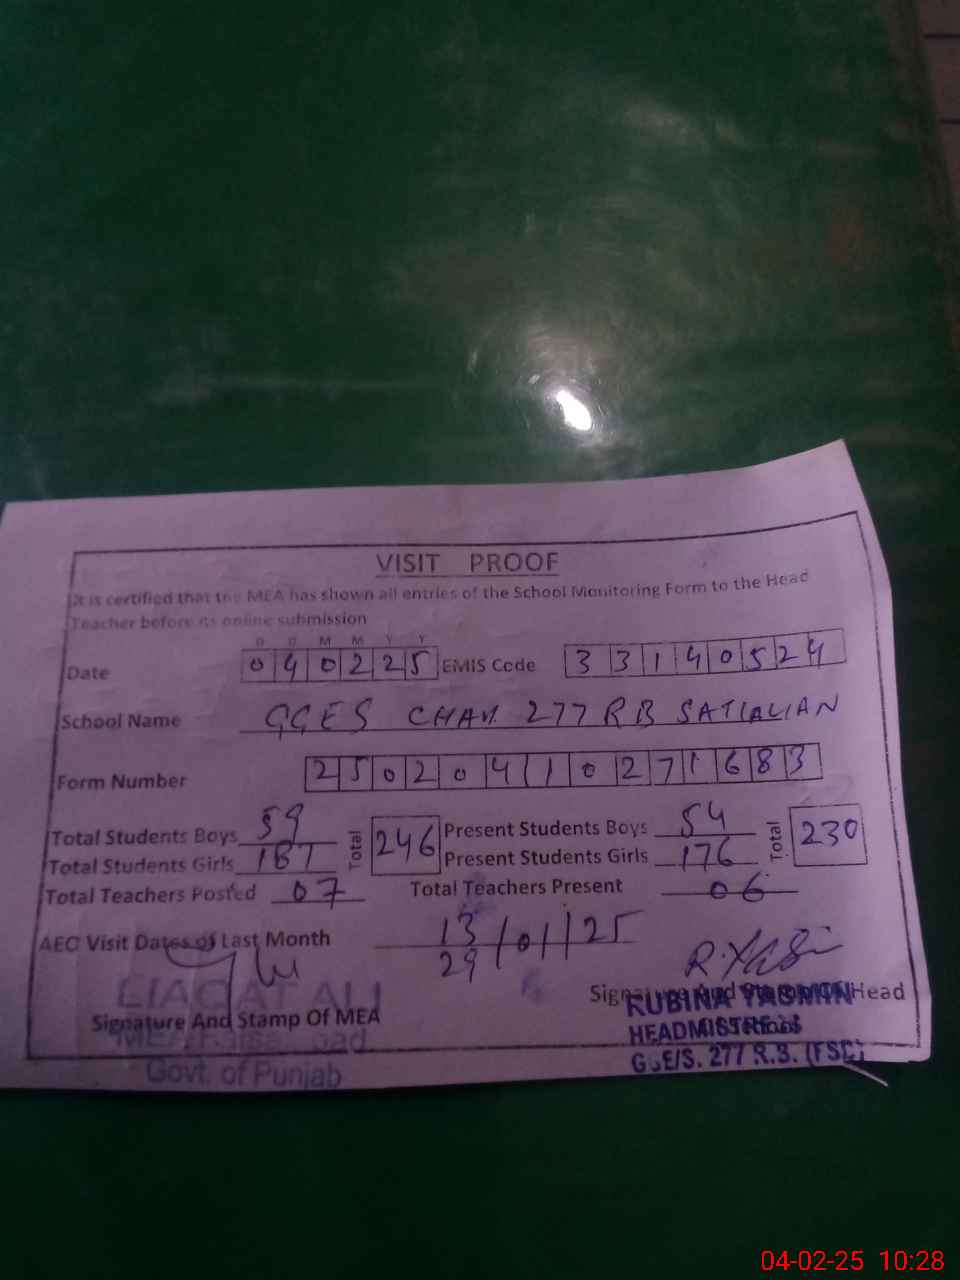 VISIT PROOF
It is certified that the MEA has shown all entries of the School Monitoring Form to the Head
Teacher before its online submission
D D M M Y Y
Date 040225 EMIS Code 33140524
School Name GGES CHAK 277 RB SATIALIAN
Form Number 250204110271683
Total Students Boys 59 Total 246 Present Students Boys 54 Total 230
Total Students Girls 187 Present Students Girls 176
Total Teachers Posted 07 Total Teachers Present 06
AEO Visit Dates of Last Month 13/01/25
29
LIAQAT ALI
Signature And Stamp Of MEA
Signature And Stamp Of Head
MEA Faisalabad
Govt. of Punjab
RUBINA YASMIN
HEADMISTRESS
GGE/S. 277 R.B. (FSD)
04-02-25 10:28